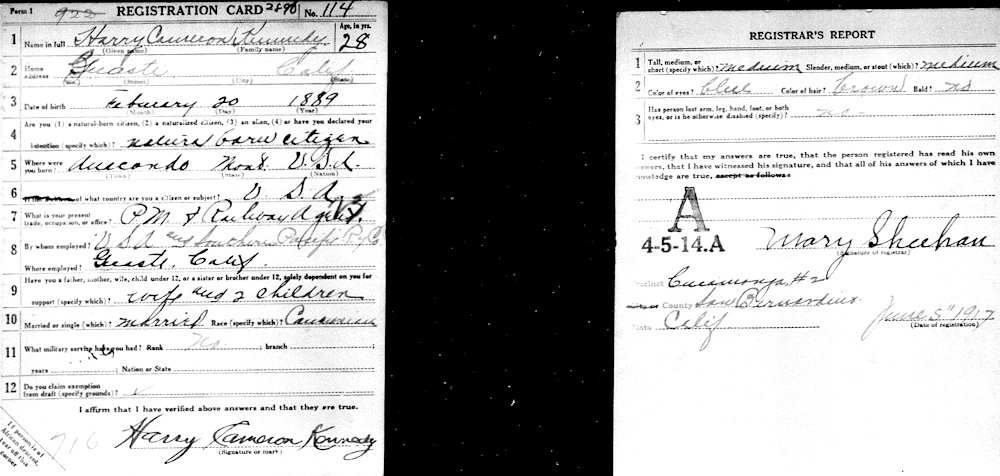 Form 1 922 REGISTRATION CARD 2890 No. 114
1 Name in full Harry Cameron Kennedy Age, in yrs. 28
(Given name) (Family name)
2 Home address Guasti Calif
(No.) (Street) (City) (State)
3 Date of birth February 20 1889
(Month) (Day) (Year)
4 Are you (1) a natural-born citizen, (2) a naturalized citizen, (3) an alien, (4) or have you declared your
intention (specify which)? natural born citizen
5 Where were Anacondo Mont U.S.A.
(Town) (State) (Nation)
6 of what country are you a citizen or subject? U S A
7 What is your present trade, occupation, or office? P.M. & Railway Agent.
8 By whom employed? U S A and Southern Pacific Ry Co
Where employed? Guasti, Calif.
9 Have you a father, mother, wife, child under 12, or a sister or brother under 12, solely dependent on you for
support (specify which)? wife and 2 children
10 Married or single (which)? Married Race (specify which)? Caucasian
11 What military service have you had? Rank no ; branch
years ; Nation or State
12 Do you claim exemption from draft (specify grounds)?
I affirm that I have verified above answers and that they are true.
716 Harry Cameron Kennedy
(Signature or mark)
If person is of African descent, tear off this corner
REGISTRAR'S REPORT
1 Tall, medium, or short (specify which)? medium Slender, medium, or stout (which)? medium
2 Color of eyes? blue Color of hair? brown Bald? no
3 Has person lost arm, leg, hand, foot, or both eyes, or is he otherwise disabled (specify)? no.
I certify that my answers are true, that the person registered has read his own
answers, that I have witnessed his signature, and that all of his answers of which I have
knowledge are true, except as follows:
A
4-5-14.A
Mary Sheehan
(Signature of registrar)
Precinct Cucamonga, #2
County San Bernardino
State Calif June 5" 1917
(Date of registration)